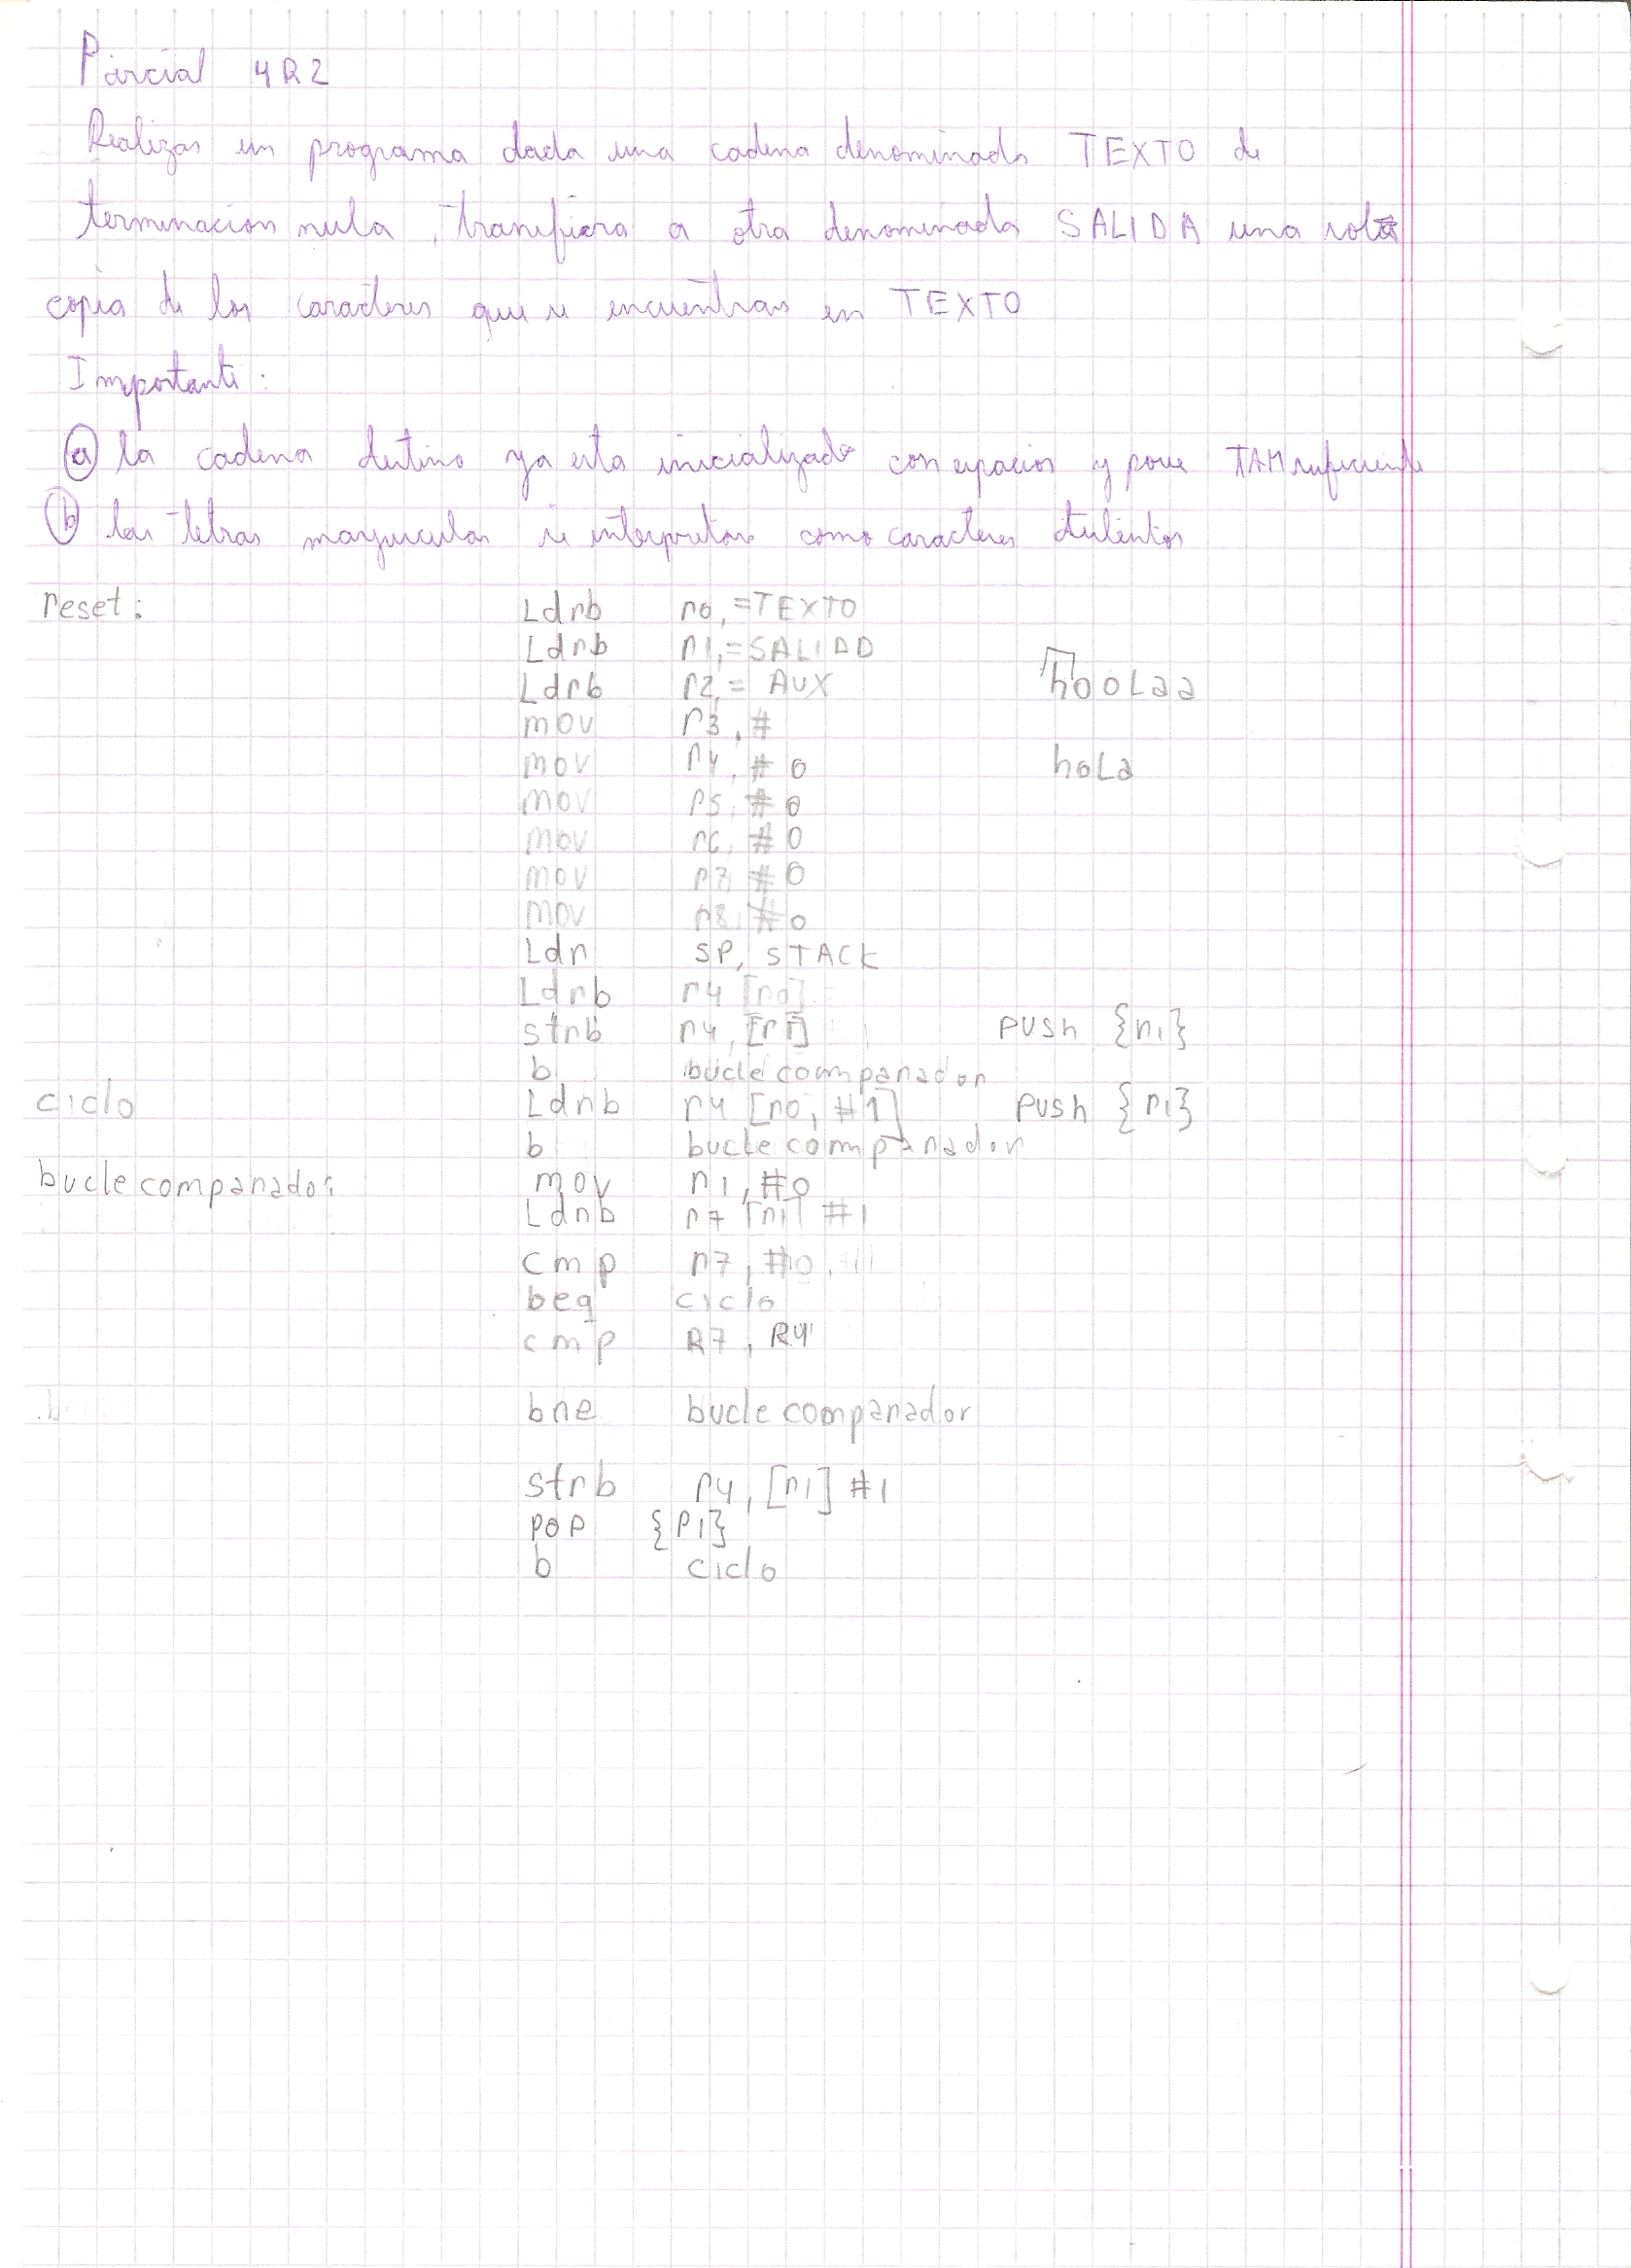 Parcial 4R2
Realizar un programa dada una cadena denominada TEXTO de
terminacion nula, tranfiera a otra denominada SALIDA una sola
copia de los caracteres que se encuentran en TEXTO
Importante:
a la cadena destino ya esta inicializada con espacios y posee TAM suficiente
b las letras mayusculas se interpretan como caracteres
reset:	Ldrb	r0,=TEXTO
Ldrb	r1,=SALIDA
Ldrb	r2,= AUX	hooLaa
mov	r3,#
mov	r4,#0	hoLa
mov	r5,#0
mov	r6,#0
mov	r7,#0
mov	r8,#0
Ldr	SP, STACK
Ldrb	r4 [r0]
strb	r4,[r1]	push {r1}
b	bucle comparador
ciclo	Ldrb	r4 [r0, #1]	push {r1}
b	bucle comparador
bucle comparador:	mov	r1,#0
Ldrb	r7 [r1] #1
cmp	r7,#0,
beq	ciclo
cmp	R7, R4
bne	bucle comparador
strb	r4,[r1] #1
pop	{r1}
b	ciclo